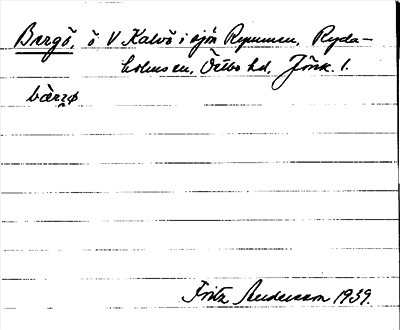 Bergö, ö V Kalvö i sjön Rymmen, Ryda-
holms sn, Östbo hd, Jönk. l.
bæ̀rʒø
Fritz Andersson 1939.